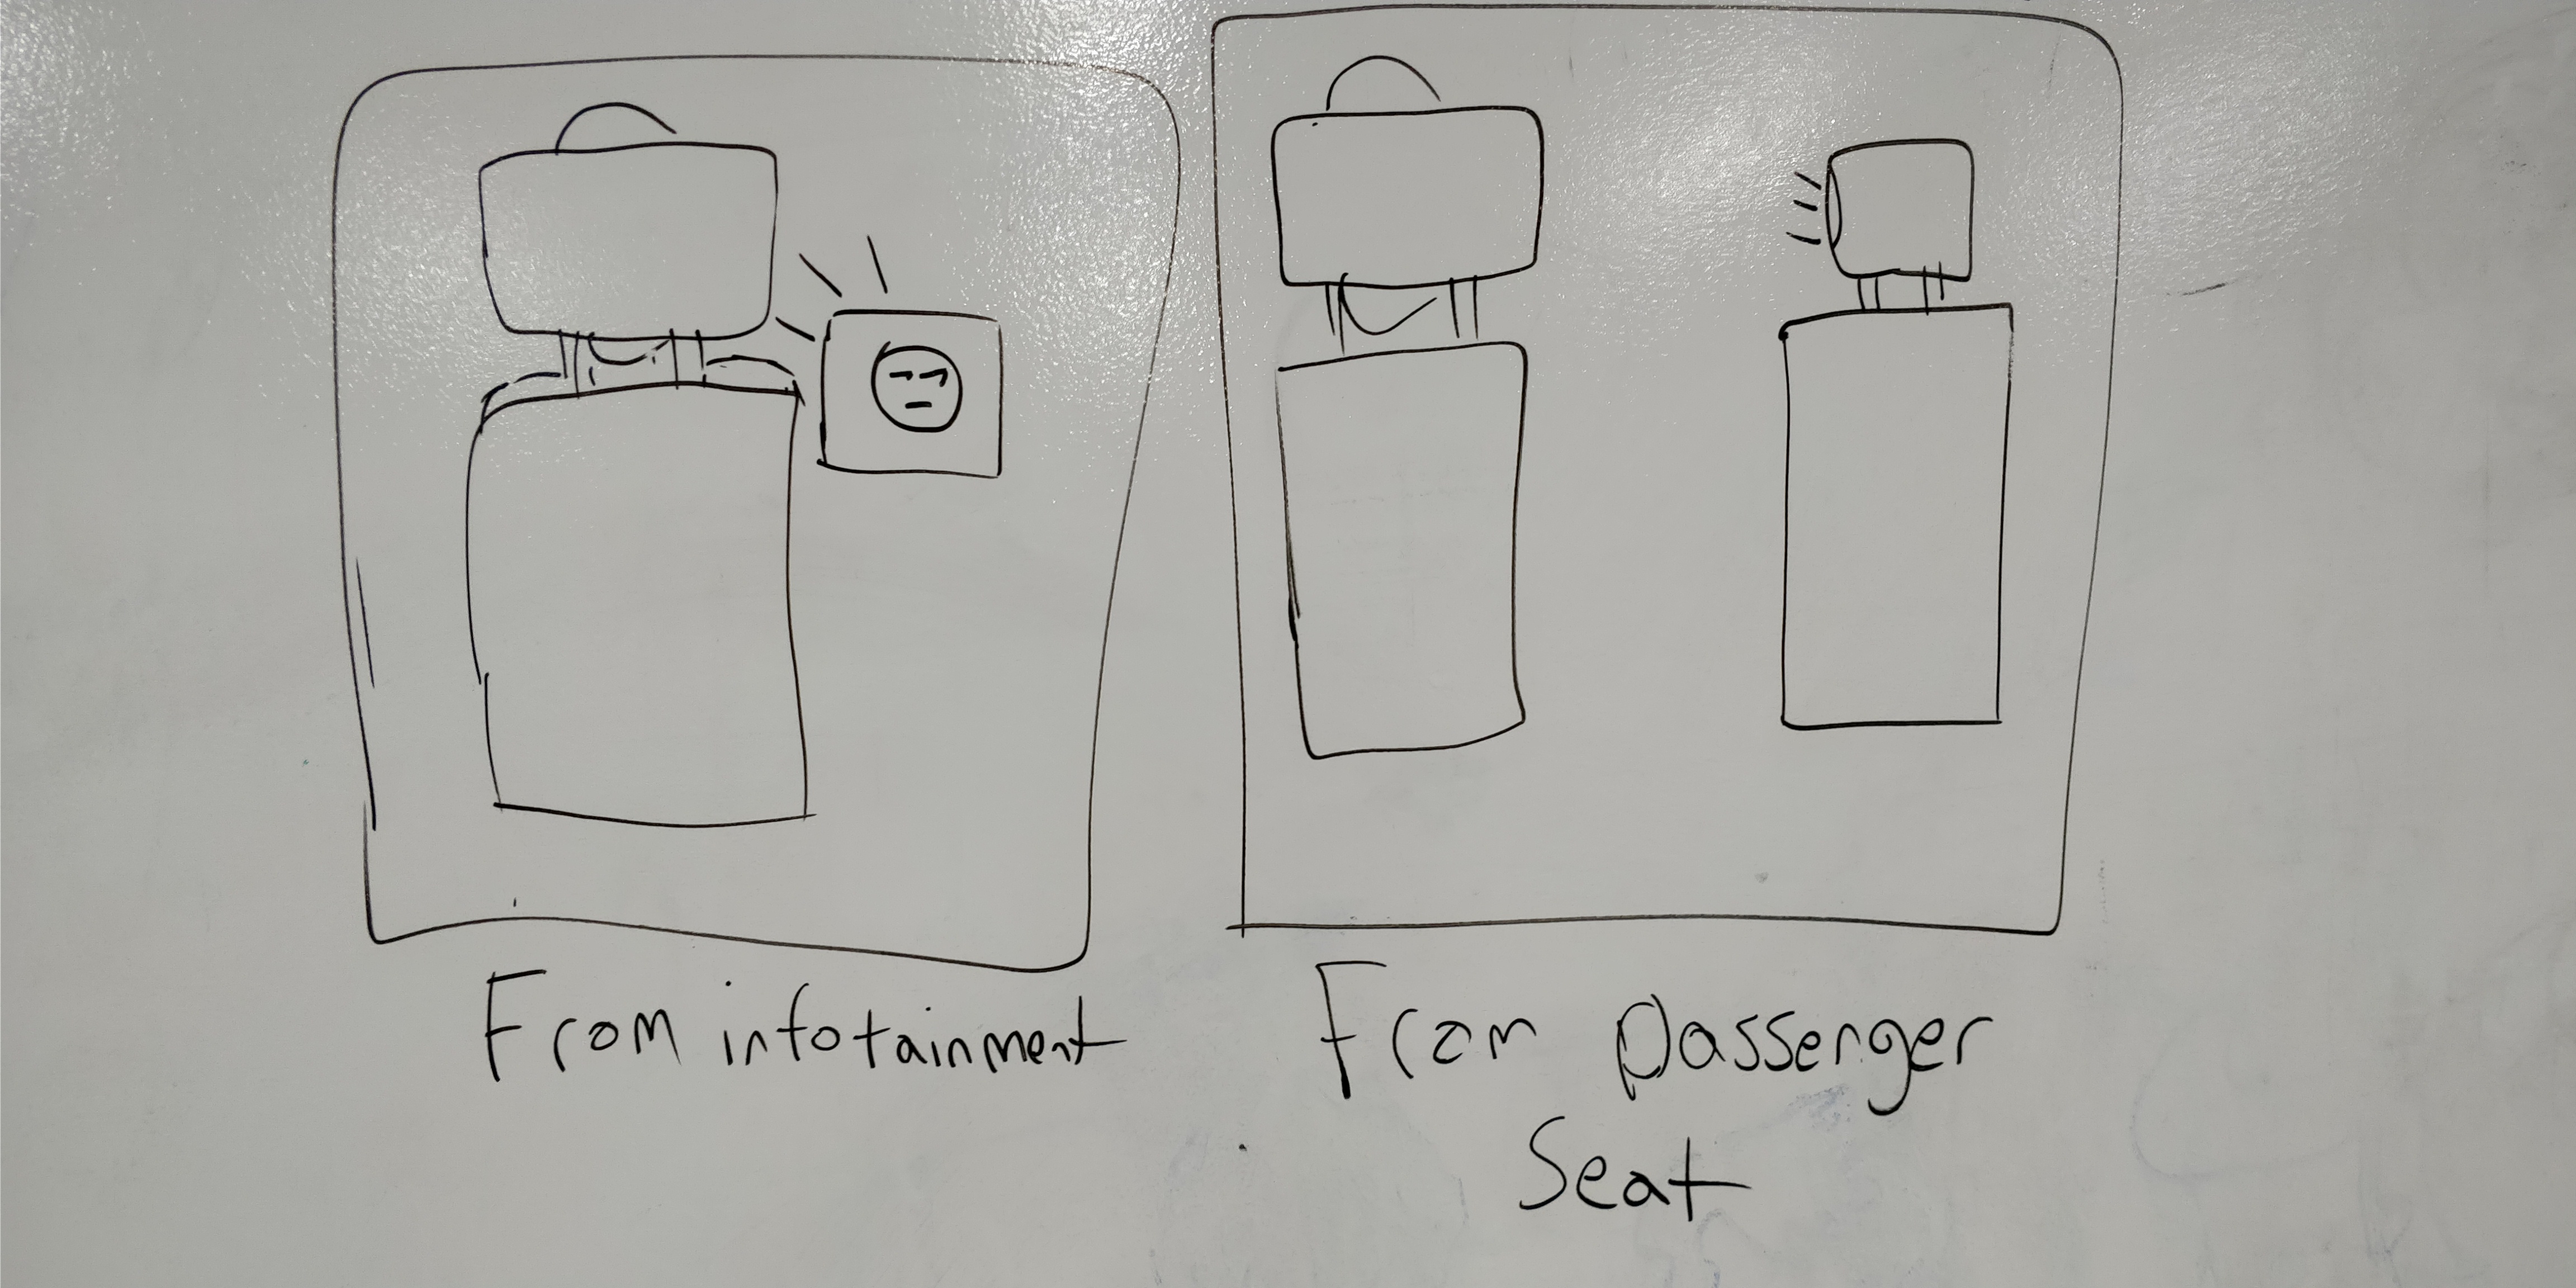 From infotainment
From passenger
Seat